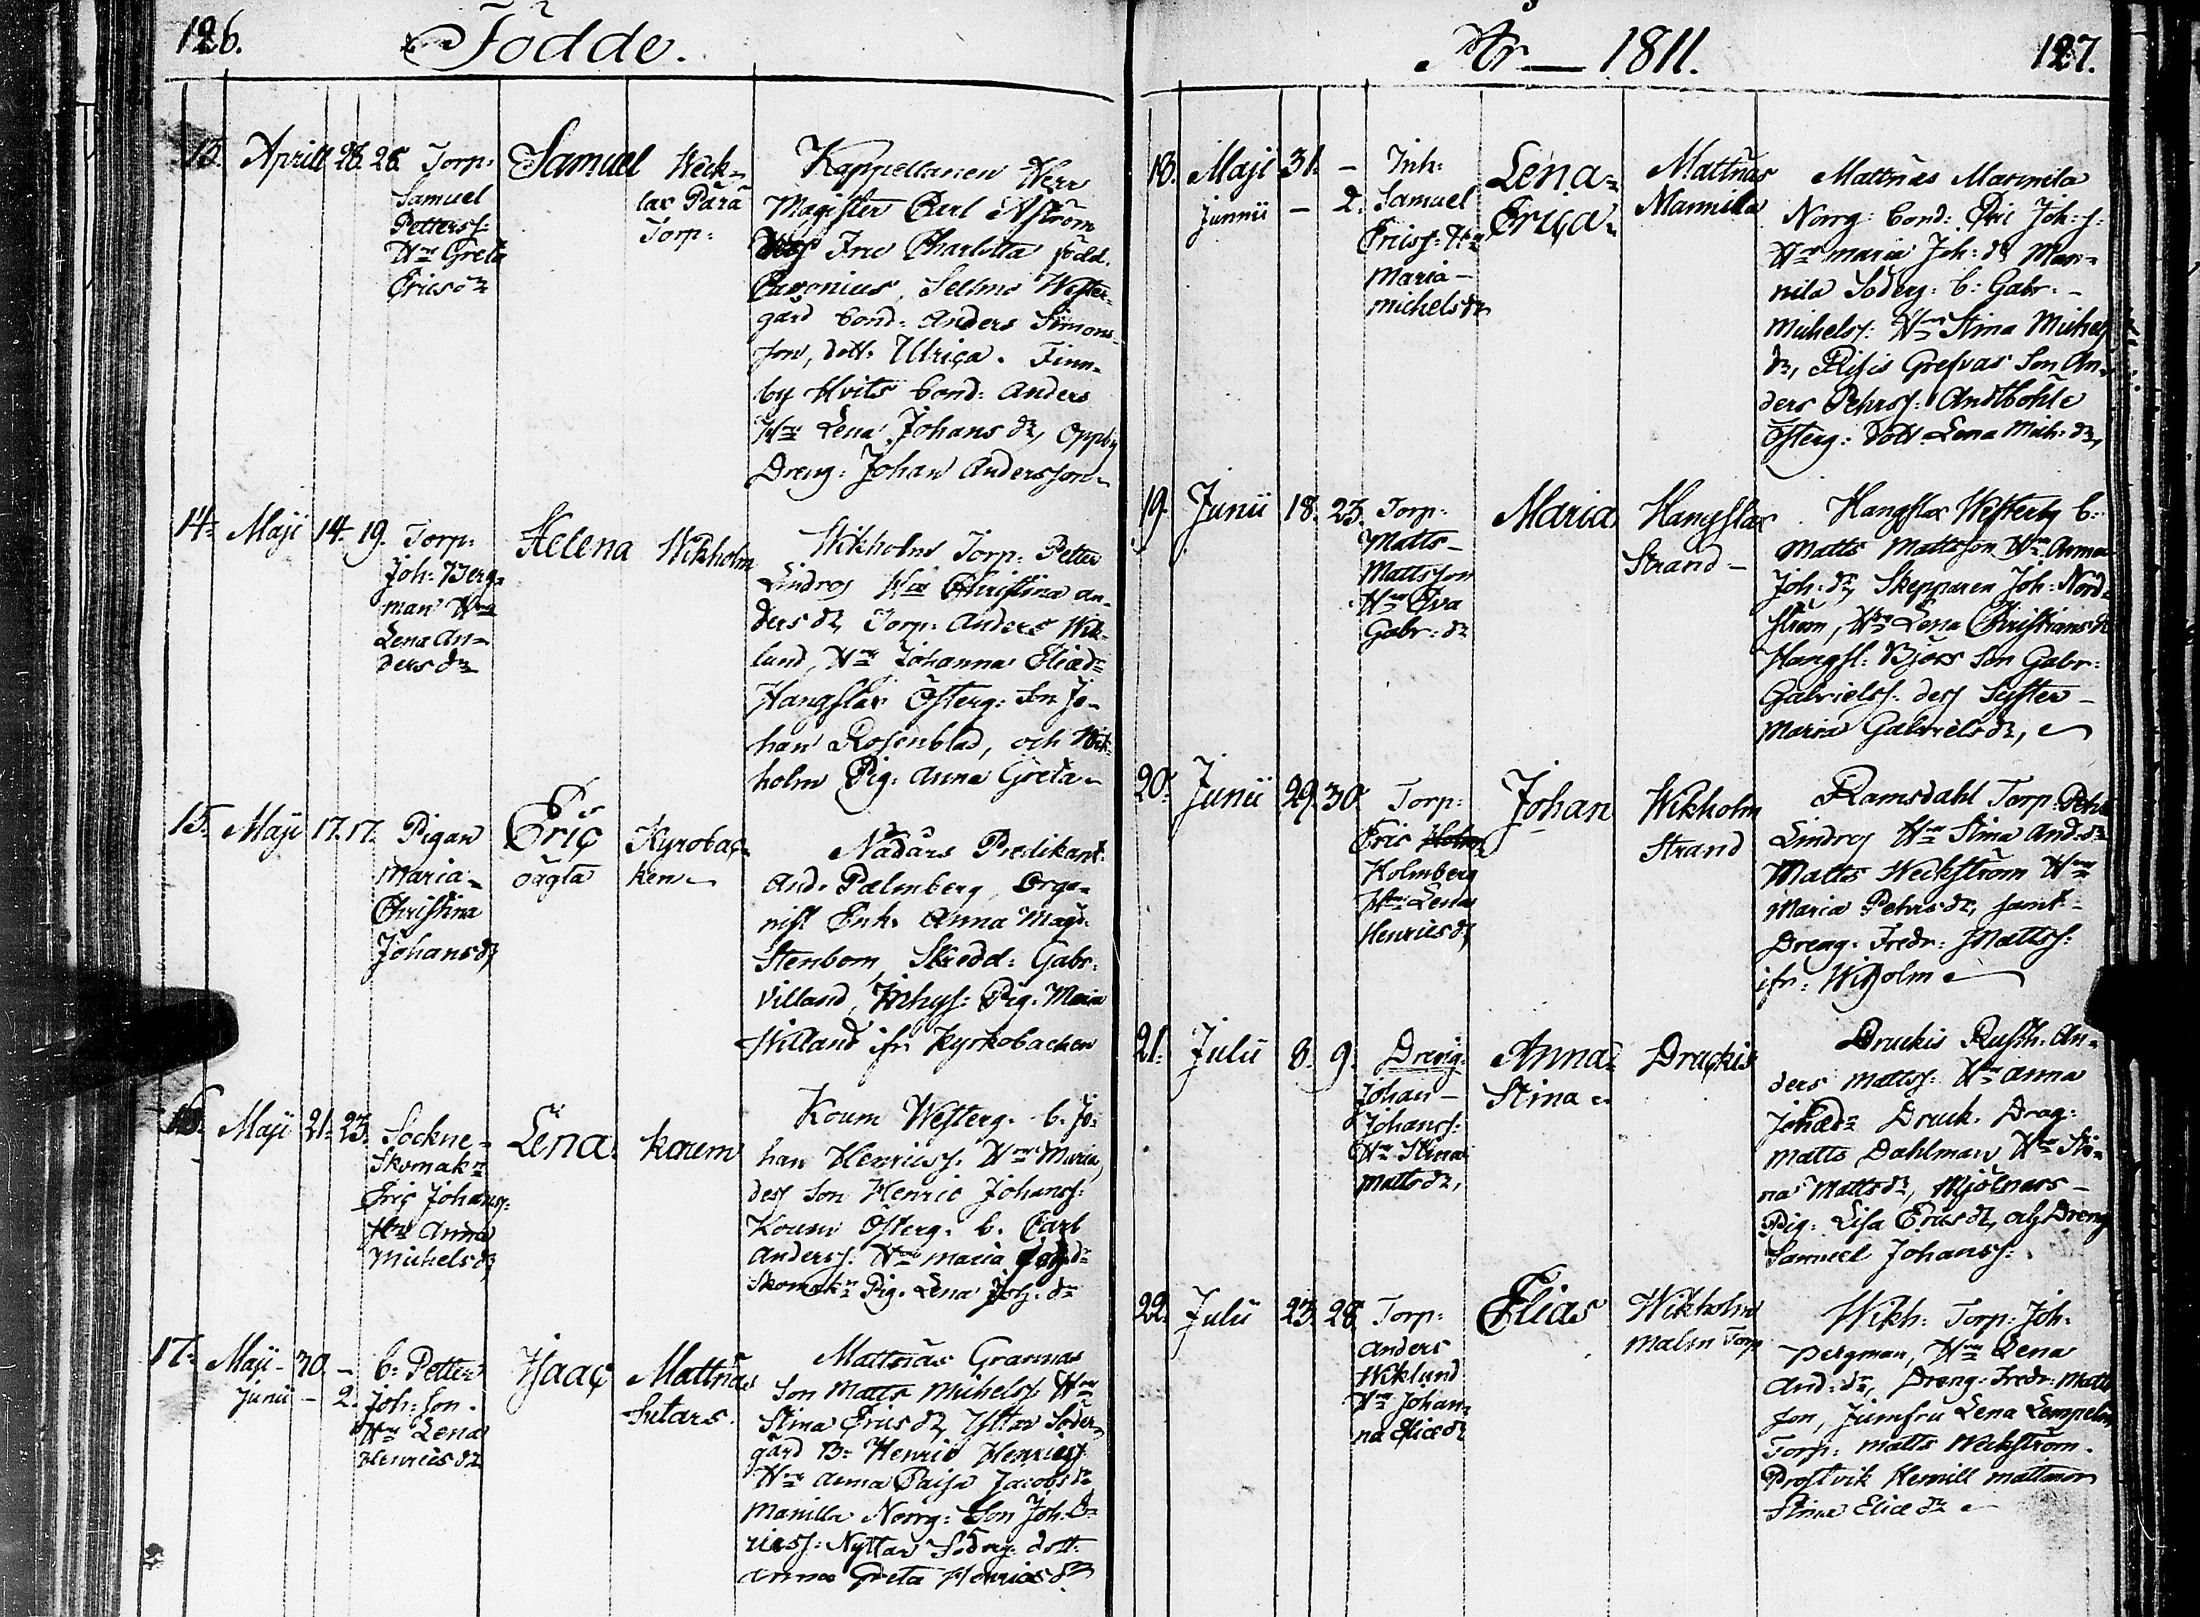 126. Födde.
13. Aprill 26. 26. Torp:
Samuel
Petterss:
Hru Greta
Ericsdr
Samuel
Weck-
lax Para
Torp:
Kappellanen Herr
Magister Carl Aström
dess Fru Charlotta född.
Sellmo Wester-
gård bond: Anders Simons-
son, dott: Ulriça. Finn-
by Hvits bond: Anders
Hru Lena Johans dr, Oppby
Dreng: Johan Andersson
14. Maji 14. 19. Torp:
Joh: Berg-
man Hru
Lena An-
ders dr
Helena
Wikholm
Wikholms Torp: Petter
Lindros Hru Christina An-
ders dr, Torp: Anders Wik-
lund, Hru Johanna Eliædr
Hangslax Österg: son Jo-
han Rosenblad, och Wik-
holm Pig: Anna Greta
15. Maji 17. 17. Pigan
Maria
Christina
Johansdr
Eriç
oägta
Kyrobaç-
ken
Nådårs Predikant
And: Palmberg, Orga-
nist Enk: Anna Magd:
Stenbom, Skredd: Gabr:
Villand, Inhys: Pig: Maria
Willand ifr: Kyrkobacken
16. Maji 21. 23. Sockne-
Skomakr
Eriç Johanss:
Hru Anna
Michelsdr
Lena
Koum
Koum Westerg: b: Jo-
han Henricss: Hru Maria,
dess son Henric Johanss:
Koum Österg: b: Carl
Anderss: Hru Maria
Skomakr Pig: Lena Joh: dr
17. Maji 30. –
Junii – 2.
b: Petter
Joh: son
Hru Lena
Henricsdr
Isaaç
Mattnäs
Sutars
Mattnäs Grannas
Son Matts Michelss: Hru
Stina Ericsdr, Yttar Söder-
gård B: Henric Henricss:
Hru Anna Caisa Jacobsdr
Manilla Norrg: Son Joh: E-
ricss: Nyttar Söderg: dott:
Anna Greta Henricsdr
År 1811. 127.
18. Maji 31. –
Junii – 2.
Inh:
Samuel
Ericss: Hru
Maria
Michelsdr
Lena
Eriça
Mattnäs
Mannila
Mattnäs Mannila
Norrg: bond: Eric Joh: s:
Hru Maria Joh: dr Man-
nila Söderg: b: Gabr:
Michelss: Hru Stina Michels
dr, Risis Grefvas Son An-
ders Pehrss: Andtbohle
Österg: Dott: Lena Mich: dr,
19. Junii 18. 23. Torp:
Matts
Mattsson
Hru Eva
Gabr: dr
Maria
Hangslax
Strand
Hangslax Westerby b:
Matts Mattsson Hru Anna
Joh: dr, Skepparen Joh: Nord-
ström, Hru Lena Christiansdr
Hangsl: Björs Son Gabr:
Gabrielss: dess Syster
Maria Gabrielsdr,
20. Junii 29. 30. Torp:
Eric
Holmberg
Hru Lena
Henricsdr
Johan
Wikholm
Strand
Ramsdahl Torp: Pehr
Lindros Hru Stina And: dr
Matts Weckström Hru
Maria Pehrsdr, samt
Dreng: Fredr: Mattss:
ifr: Wikholm
21. Julii 8. 9. Dreng:
Johan
Johanss:
Hru Stina
Mattsdr,
Anna
Stina
Druçkis
Druckis Rusth: An-
ders Mattss: Hru Anna
Johædr Druck: Drag:
Matts Dahlman Hru Sti-
na Mattsdr, Mjölnars
Pig: Lisa Ericsdr, och Dreng
Samuel Johanss:
22. Julii 23. 28. Torp:
Anders
Wiklund
Hru Johan-
na Eliædr
Elias
Wikholm
Malm Torp
Wikh: Torp: Joh:
Bergman, Hru Lena
And: dr, Dreng: Fredr: Matts
son, Jumfru Lena Lempelin,
Torp: Matts Weckström.
Prostvik Hemill
Stina Eliædr